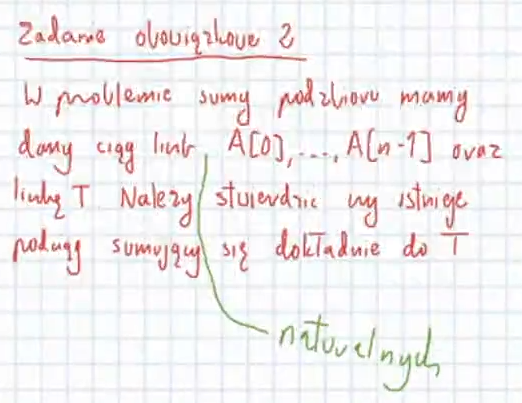 Zadanie obowiązkowe 2
W problemie sumy podzbioru mamy
dany ciąg liczb A[0], ..., A[n-1] oraz
liczbę T. Należy stwierdzić czy istnieje
podciąg sumujący się dokładnie do T
naturalnych